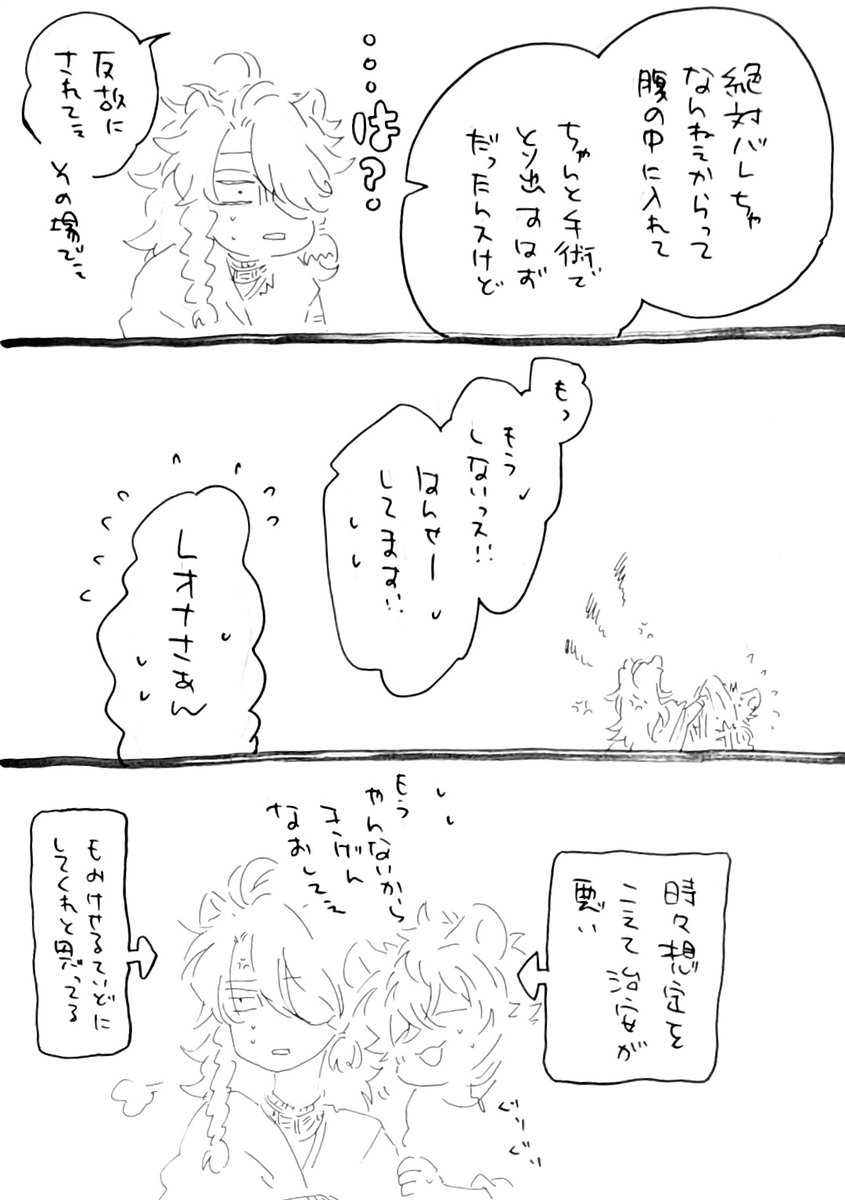 絶対バレちゃ
なんねえからって
腹の中に入れて
ちゃんと手術で
とり出すはず
だったんスけど
…は?
反故に
されてぇ
その場でぇ
もっ
もう
しないっス!!
はんせー
してます!!
レオナさぁん
時々想定を
こえて治安が
悪い
もう
やんないから
きげん
なおしてぇ
ぐりぐい
もおけせるていどに
してくれと思ってる